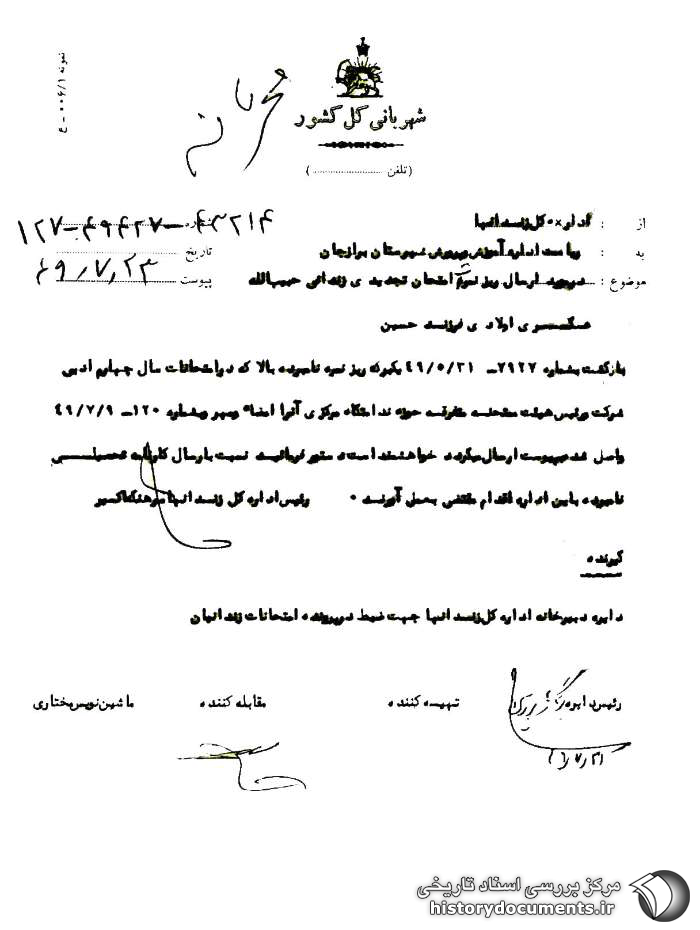 نمونه ۰۰۶/۱ - ع
محرمانه
شهربانی کل کشور
(تلفن ..............)
از : اداره کل زندانها
شماره ۴۳۲۱۴-۴۹۴۲۷-۱۲۷
به : ریاست اداره آموزش و پرورش شهرستان برازجان
تاریخ ۴۹/۷/۲۳
موضوع : درمورد ارسال ریز نمره امتحان تجدیدی زندانی حبیب‌الله
پیوست
عسگری اولادی فرزند حسین
بازگشت بشماره ۲۹۲۷ـ ۴۹/۵/۳۱ یکبرگ ریز نمره نامبرده بالا که در امتحانات سال چهارم ادبی
شرکت و رئیس هیئت ممتحنه متفرقه حوزه ندامتگاه مرکزی آنرا امضاء ومهر وبشماره ۱۲۰ـ ۴۹/۷/۹
واصل شده بپیوست ارسال میگردد خواهشمند است دستور فرمائید نسبت بارسال کارنامه تحصیلی
نامبرده باین اداره اقدام مقتضی بعمل آورند ۰ رئیس اداره کل زندانها سرهنگ
گیرنده
دایره دبیرخانه اداره کل زندانها جهت ضبط در پرونده امتحانات زندانیان
رئیس دایره تهیه کننده مقابله کننده ماشین نویس بختاری
مرکز بررسی اسناد تاریخی
historydocuments.ir